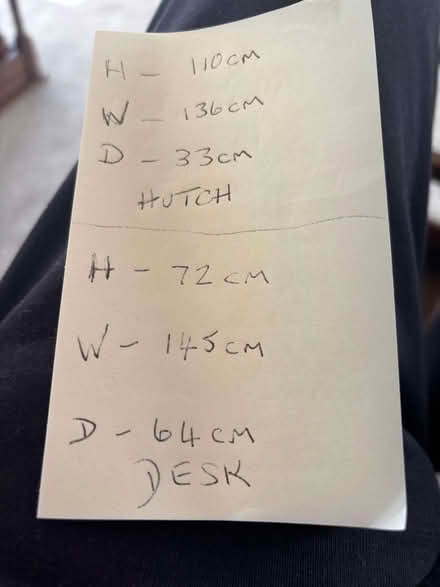 H - 110cm
W - 136cm
D - 33cm
HUTCH
H - 72cm
W - 145cm
D - 64cm
DESK